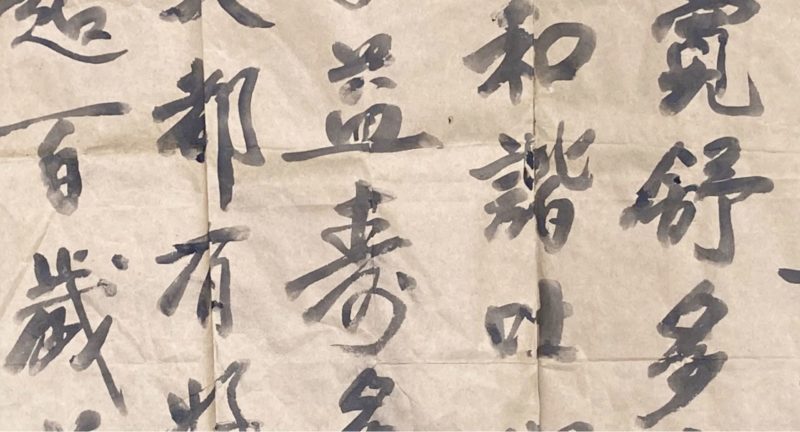 寬舒多
和諧吐
益壽多
都有好
超百歲